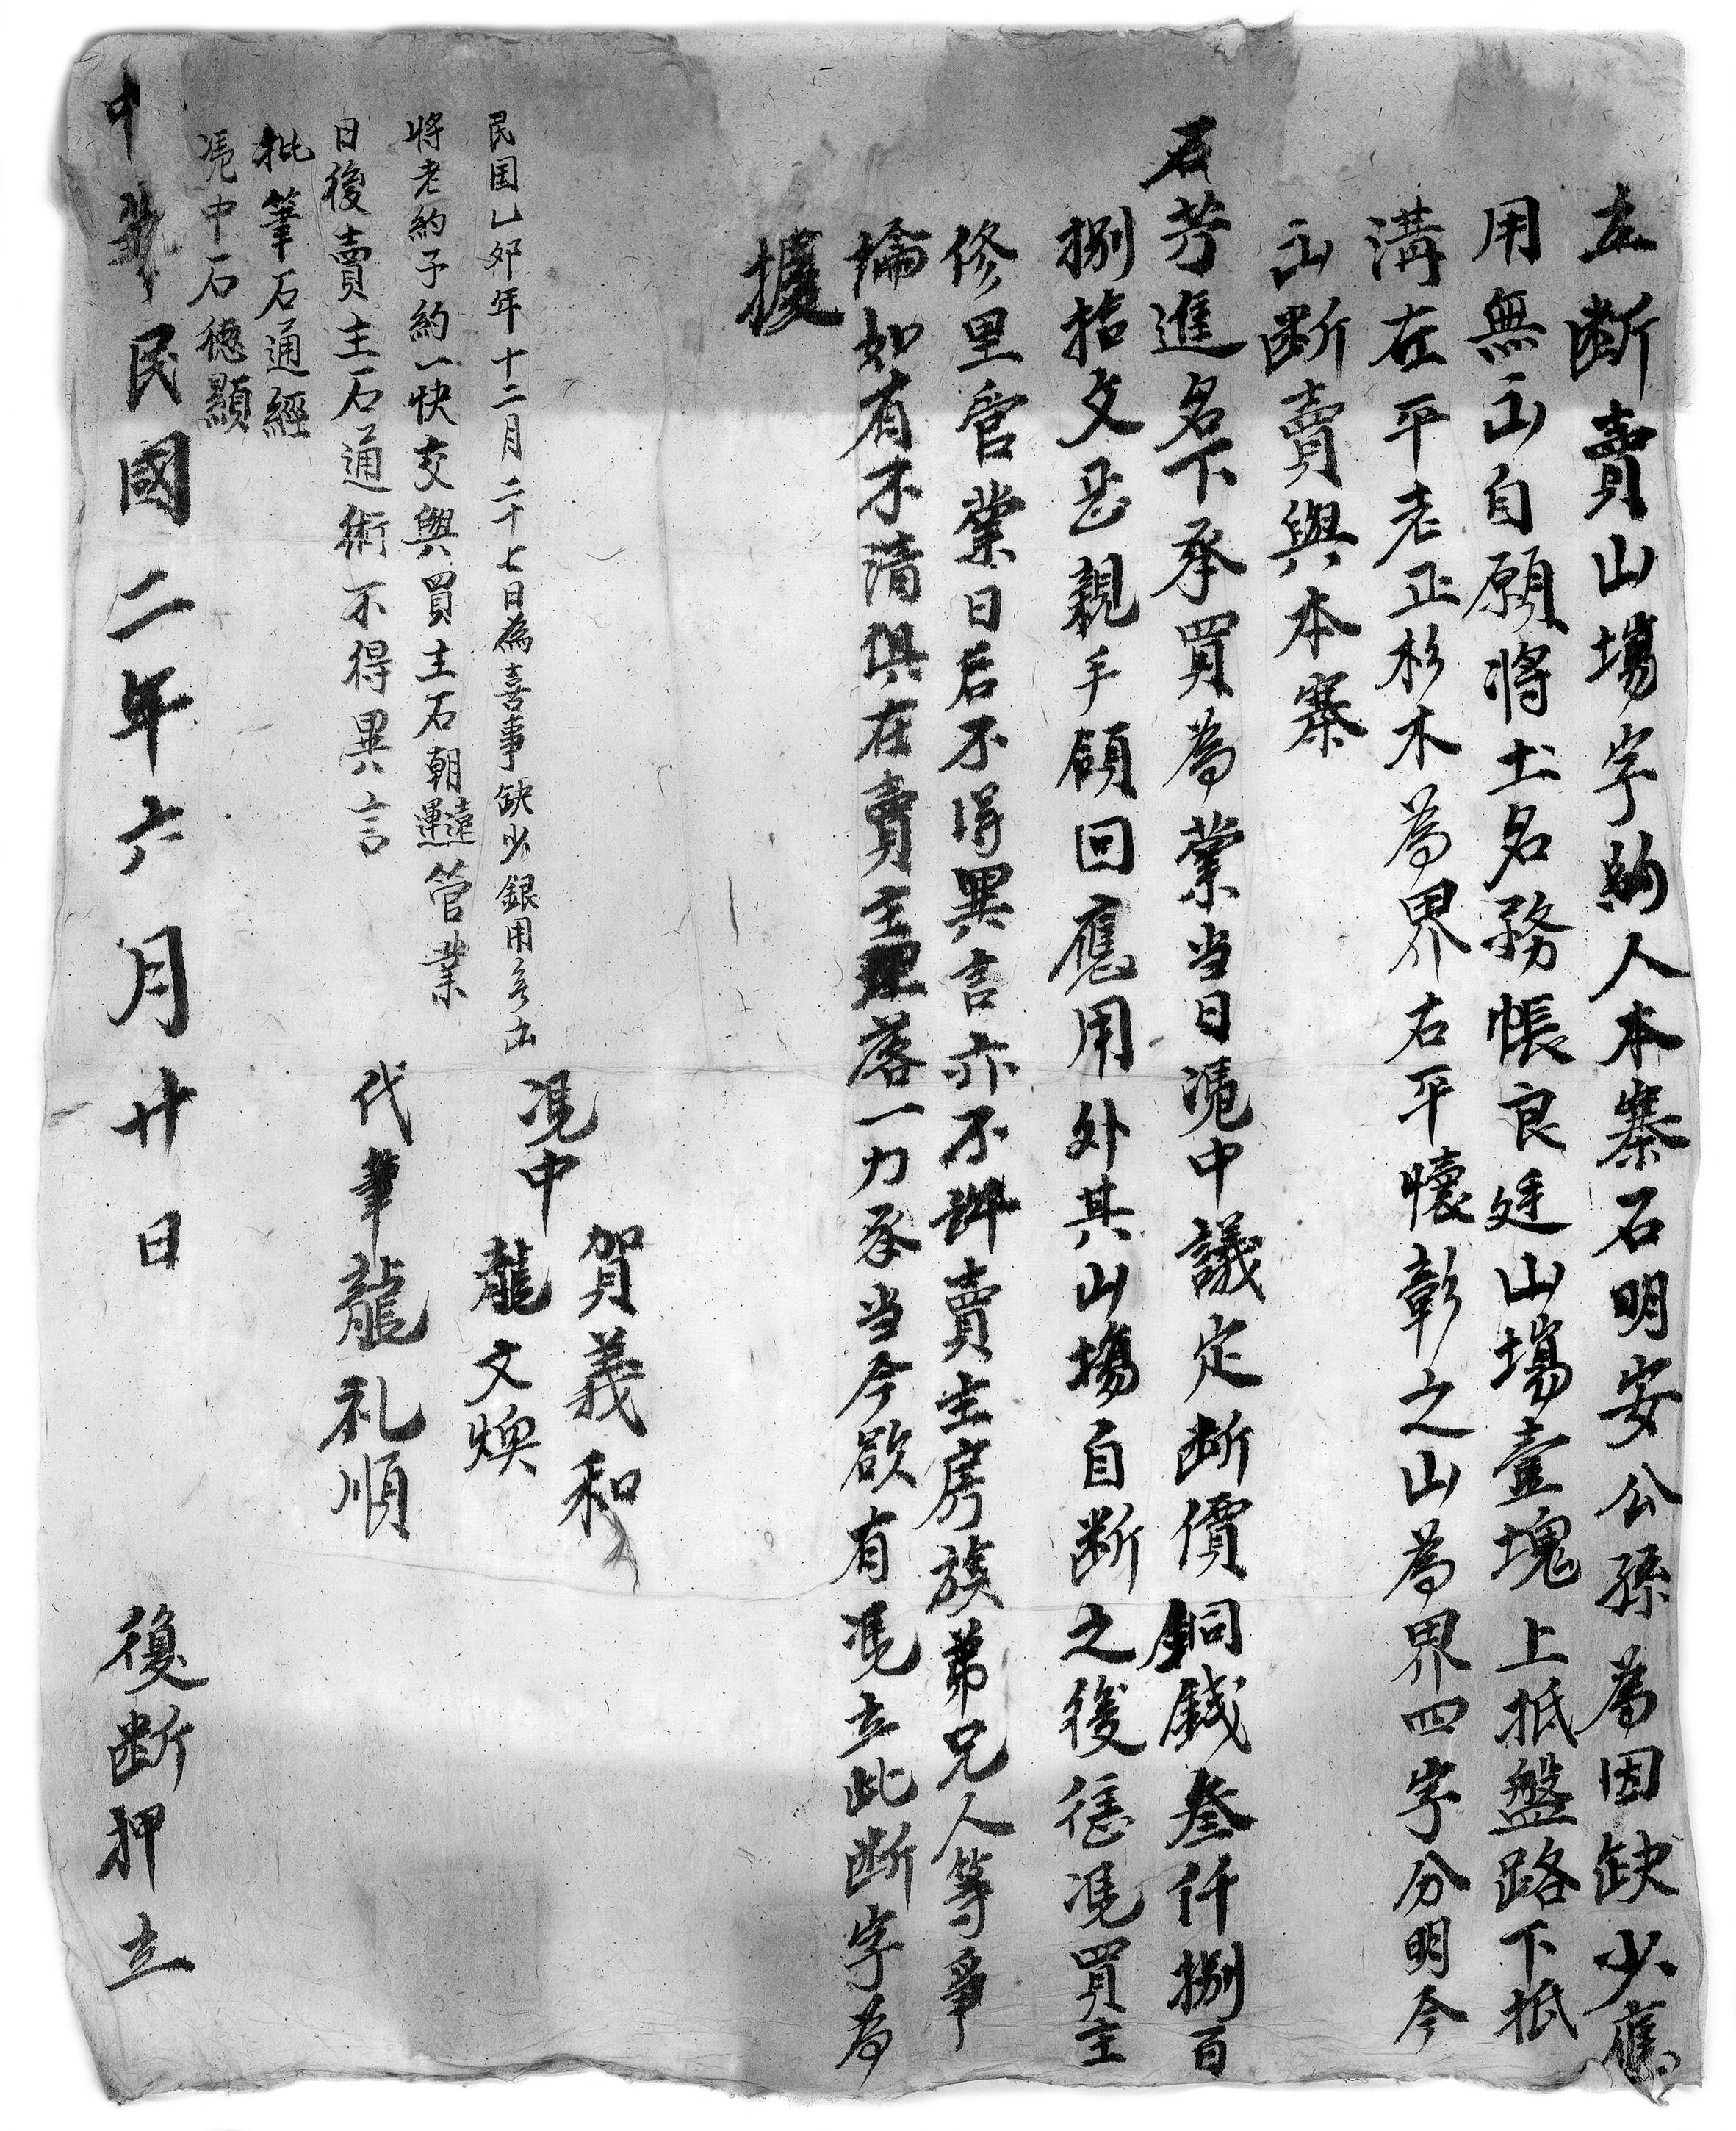 立断賣山塲字約人本寨石明安公孫為因缺少應
用無出自願將土名務帳良廷山塲壹塊上抵盤路下抵
溝左平老正杉木為界右平懷彰之山為界四字分明今
出断賣與本寨
石芳進名下承買為業当日凴中議定断價銅錢叄仟捌百
捌拾文甚親手領回應用外其山塲自断之後任凴買主
修里管業日后不得異言亦不許賣主房族弟兄人等爭
論如有不清俱在賣主理落一力承当今欲有凴立此断字為
據
凴中 賀義和
龍文煥
代筆龍礼順
民国乙卯年十二月二十七日為喜事缺少銀用無出
將老約子約一快交與買主石朝運遠管業
日後賣主石通術不得異言
批筆石通經
凴中石德顯
中華民國二年六月廿日 復断押立